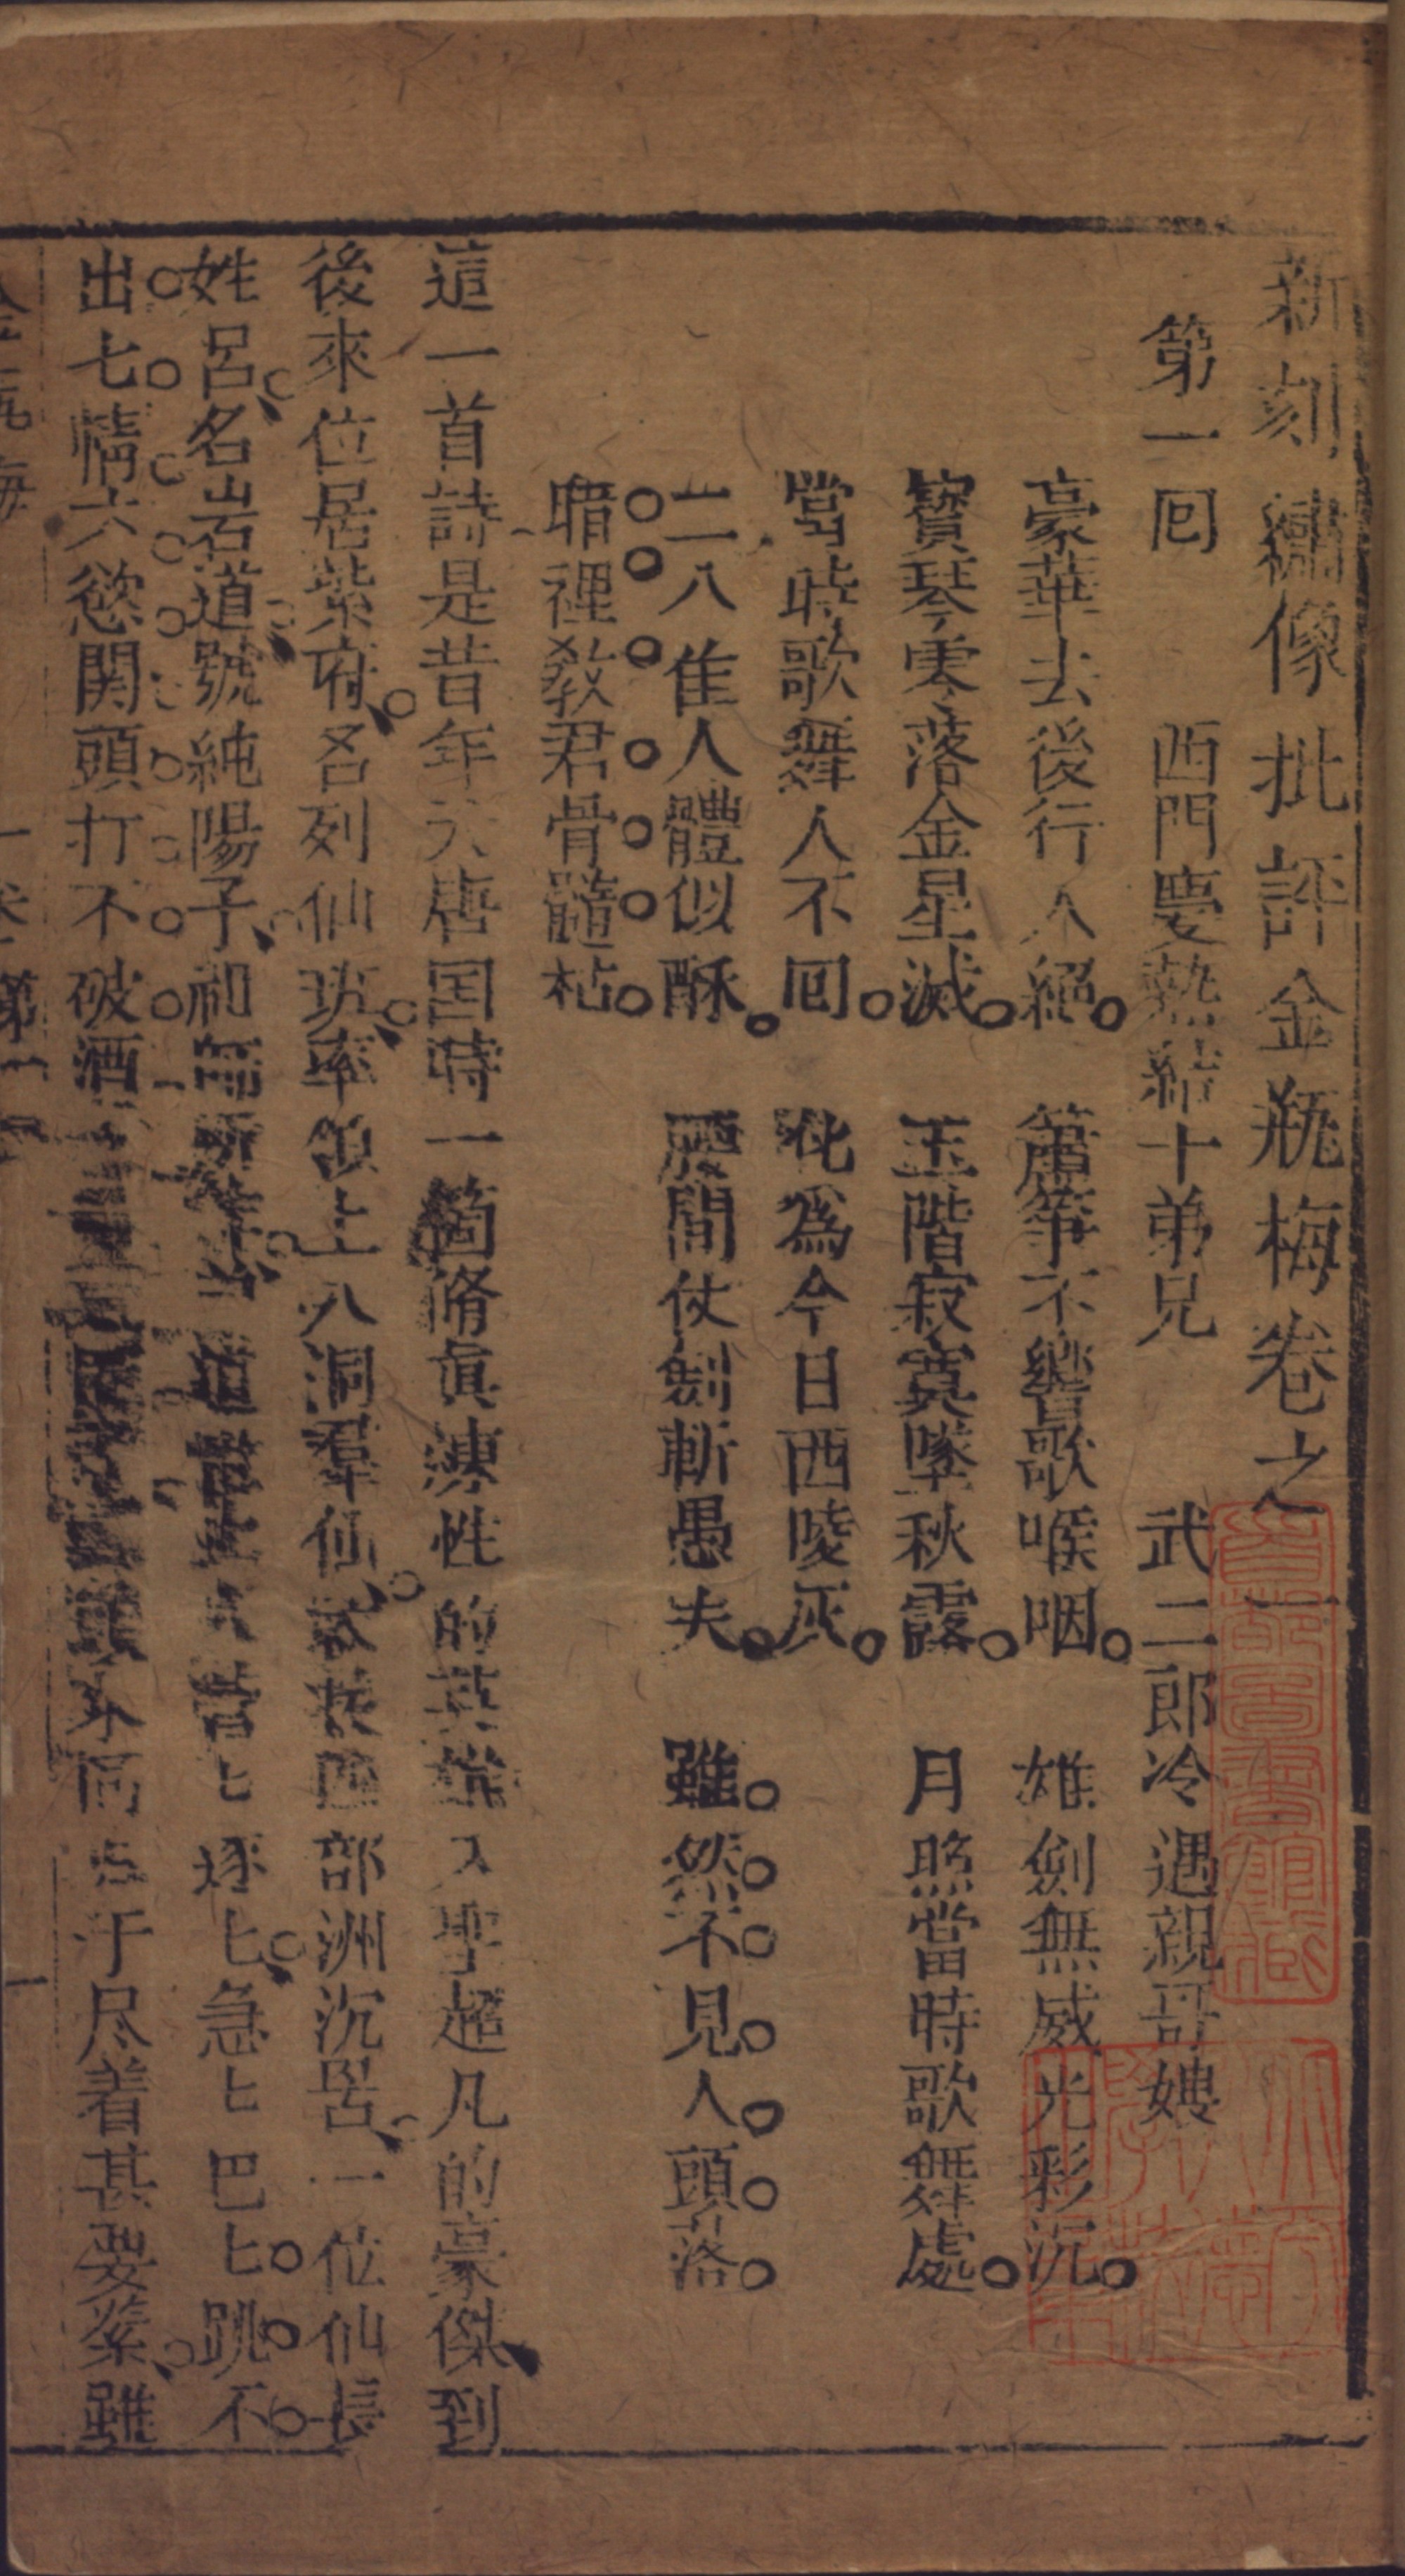 新刻繡像批評金瓶梅卷之一
第一回　西門慶熱結十弟兄　武二郎冷遇親哥嫂
豪華去後行人絕。簫箏不響歌喉咽。雄劍無威光彩沉。
寶琴零落金星滅。玉階寂寞墜秋露。月照當時歌舞處。
當時歌舞人不回。化爲今日西陵灰。
二八佳人體似酥。腰間仗劍斬愚夫。雖然不見人頭落
暗裡教君骨髓枯。
這一首詩是昔年大唐国時一箇脩眞煉性的英雄入聖超凡的豪傑到
後來位居紫府名列仙班率領上八洞羣仙救拔四部洲沉苦一位仙長
姓呂名岩道號純陽子祖師所作 道 世上人營匕逐匕急匕巴匕跳不
出七情六慾関頭打不破酒 同 于尽着甚要緊雖
金瓶梅　卷一　第一回　一
首都圖書館藏